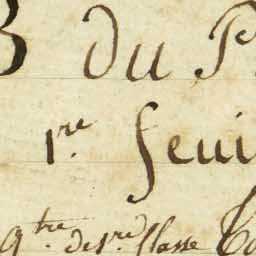 B du P
1.re feui
g.tre de 1.re Classe